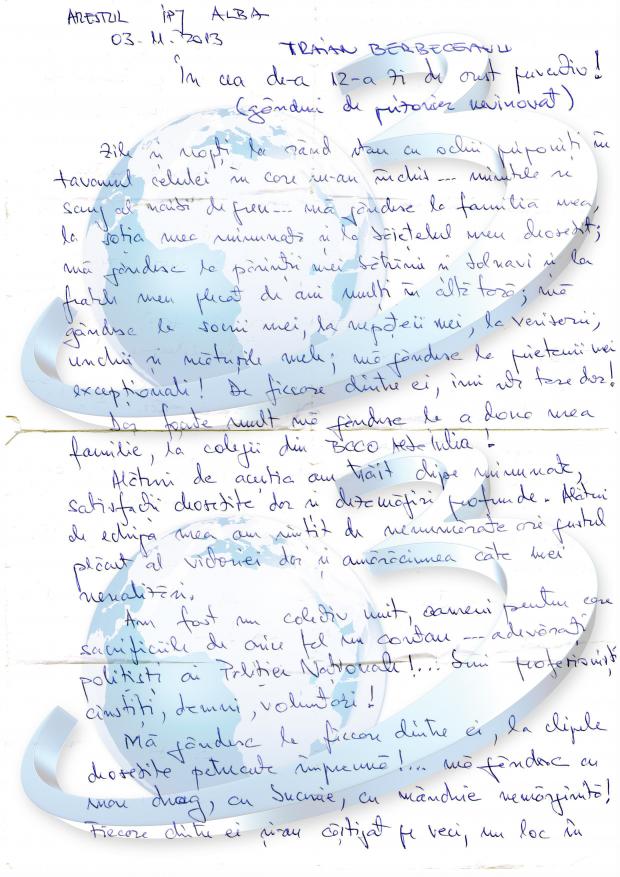 ARESTUL IPJ ALBA
03.11.2013
TRAIAN BERBECEANU
În cea de-a 12-a zi de arest preventiv!
(gânduri de prizonier nevinovat)
Zile și nopți la rând stau cu ochii pironiți în
tavanul celulei în care m-au închis --- minutele se
scurg al naibii de greu --- mă gândesc la familia mea,
la soția mea minunată și la băiețelul meu deosebit;
mă gândesc la părinții mei bătrâni și bolnavi și la
fratele meu plecat de ani mulți în altă țară; mă
gândesc la socrii mei, la nepoții mei, la verișorii,
unchii și mătușile mele; mă gândesc la prietenii mei
excepționali! De fiecare dintre ei, îmi este tare dor!
Dar foarte mult mă gândesc la a doua mea
familie, la colegii din BCCO Alba Iulia!
Alături de aceștia am trăit clipe minunate,
satisfacții deosebite, dar și dezamăgiri profunde. Alături
de echipa mea am simțit de nenumărate ori gustul
plăcut al victoriei dar și amărăciunea câte unei
nerealizări.
Am fost un colectiv unit, oameni pentru care
sacrificiile de orice fel nu contau --- adevărați
polițiști ai Poliției Naționale!... Sunt profesioniști
cinstiți, demni, voluntari!
Mă gândesc la fiecare dintre ei, la clipele
deosebite petrecute împreună!... mă gândesc cu
mare drag, cu bucurie, cu mândrie nemărginită!
Fiecare dintre ei și-au câștigat pe veci, un loc în